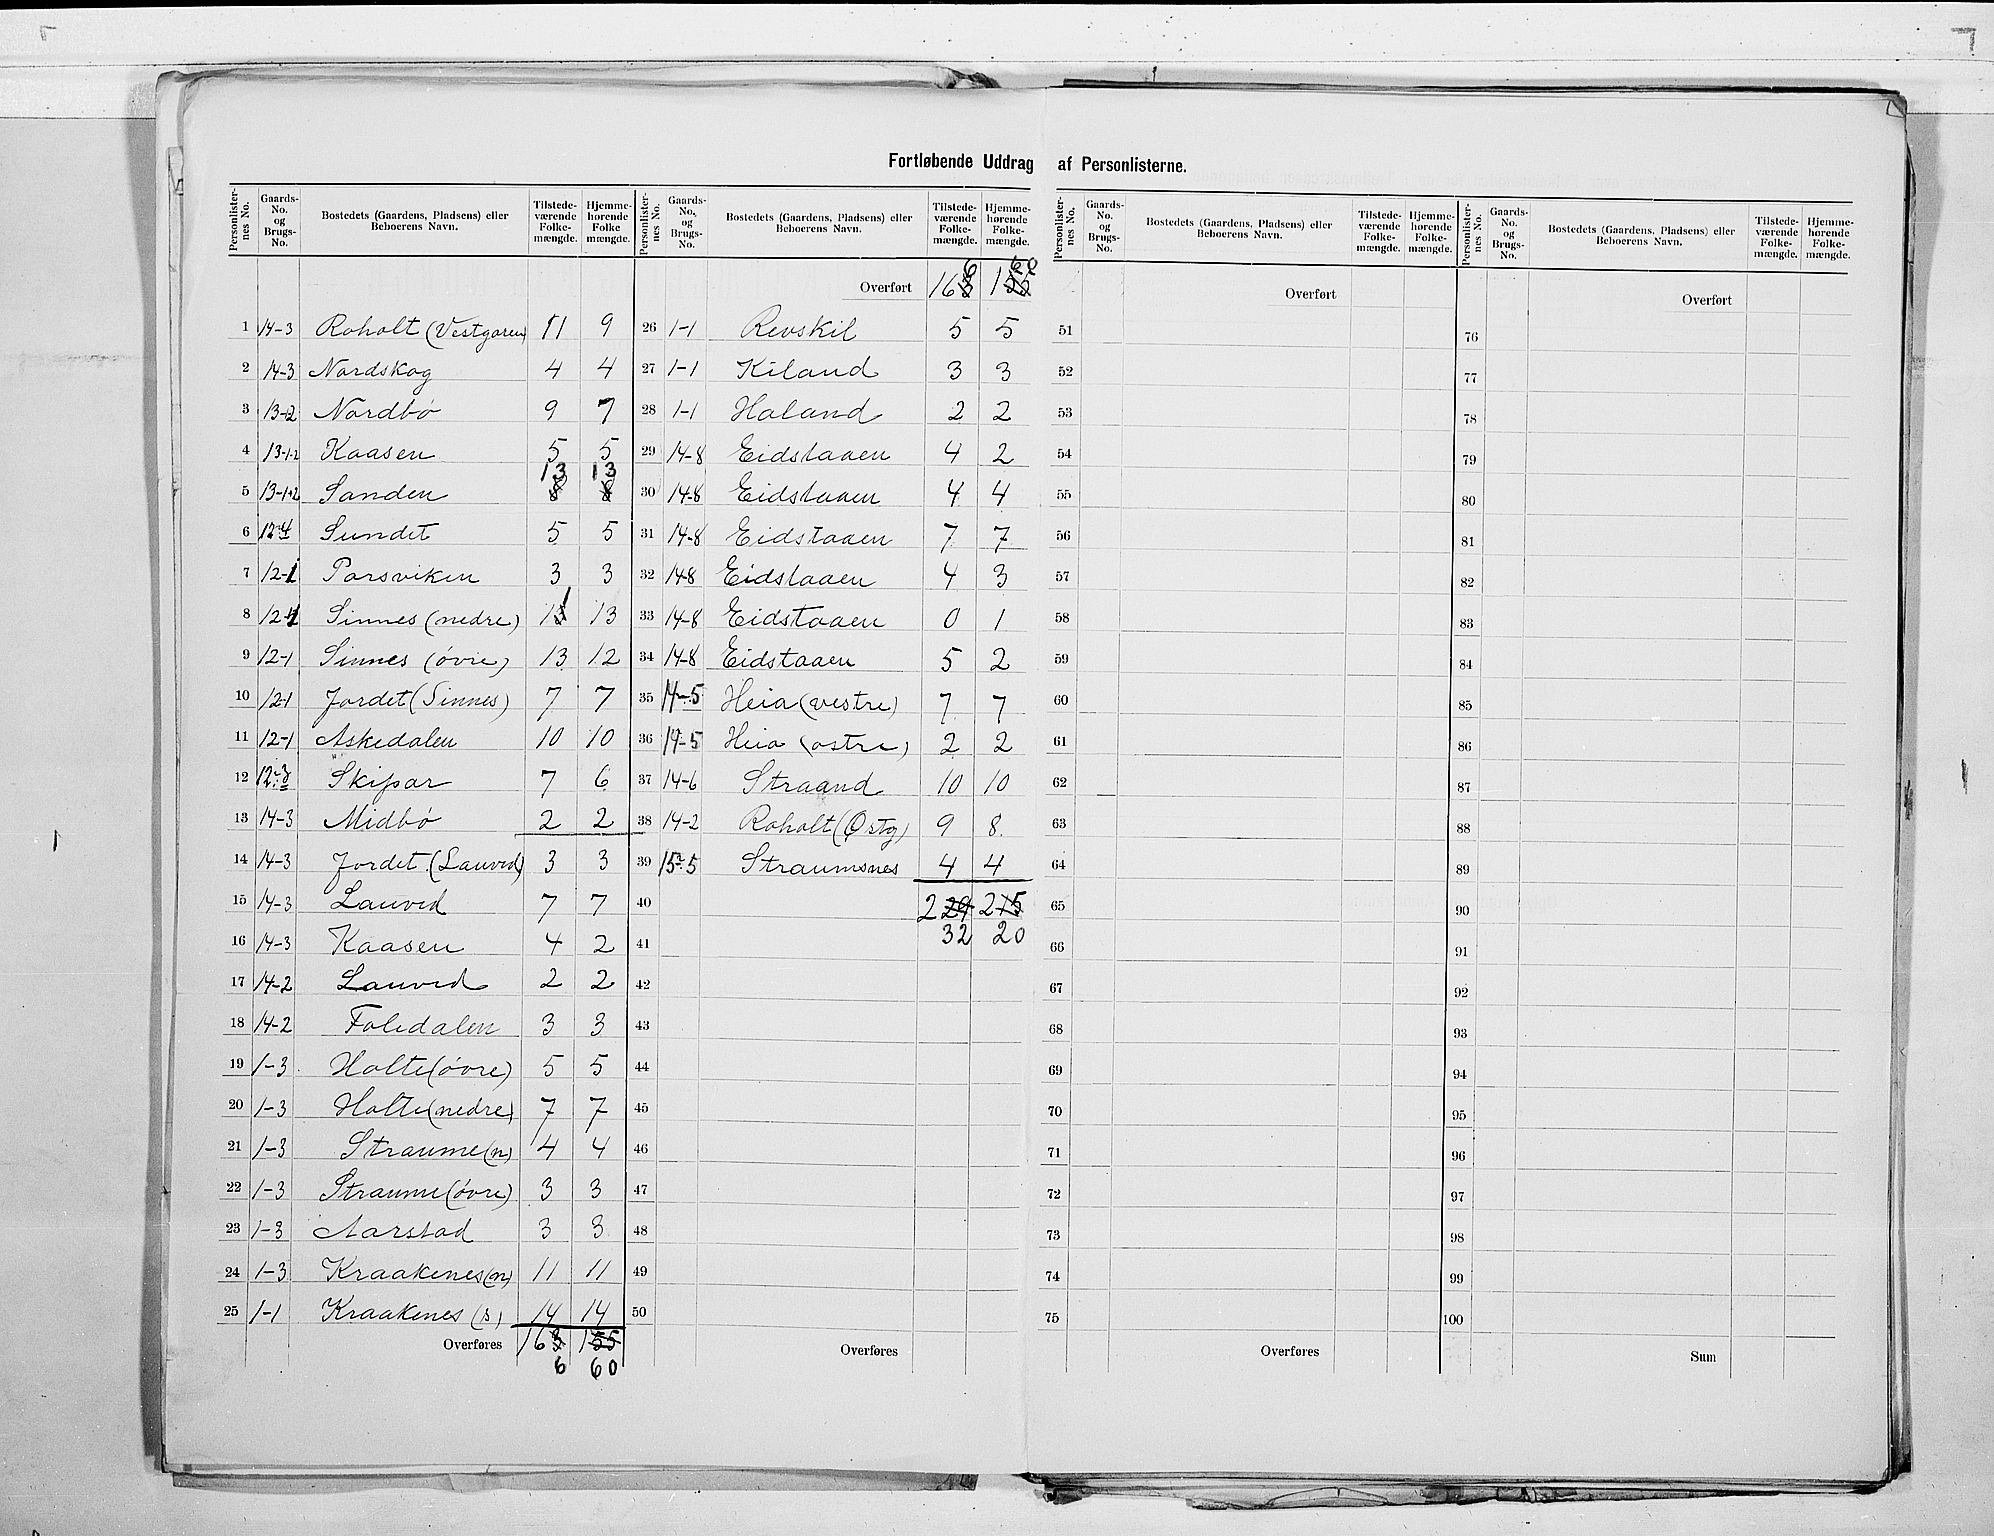 Fortløbende Uddrag af Personlisterne.
Personlister-nes No. | Gaards-No. og Brugs-No. | Bostedets (Gaardens, Pladsens) eller Beboerens Navn. | Tilstede-værende Folke-mængde. | Hjemme-hørende Folke mængde.
1 14-3 Roholt (Vestgaren) 11 9
2 14-3 Nordskog 4 4
3 13-12 Nordbö 9 7
4 13-1-2 Kaasen 5 5
5 13-1+2 Sanden 13 13
6 12-4 Sundet 5 5
7 12-1 Porsviken 3 3
8 12-1 Sinnes (nedre) 11 13
9 12-1 Sinnes (övre) 13 12
10 12-1 Jordet (Sinnes) 7 7
11 12-1 Askedalen 10 10
12 12-3 Skipar 7 6
13 14-3 Midbö 2 2
14 14-3 Jordet (Lauvid) 3 3
15 14-3 Lauvid 7 7
16 14-3 Kaasen 4 2
17 14-2 Lauvid 2 2
18 14-2 Foledalen 3 3
19 1-3 Holte (övre) 5 5
20 1-3 Holte (nedre) 7 7
21 1-3 Straume (n) 4 4
22 1-3 Straume (övre) 3 3
23 1-3 Aarstad 3 3
24 1-3 Kraakenes (n) 11 11
25 1-1 Kraakenes (s) 14 14
Overføres 163 155
6 60
Personlister-nes No. | Gaards-No. og Brugs-No. | Bostedets (Gaardens, Pladsens) eller Beboerens Navn. | Tilstede-værende Folke-mængde. | Hjemme-hørende Folke-mængde.
6 60
Overført 163 155
26 1-1 Revskil 5 5
27 1-1 Kiland 3 3
28 1-1 Haland 2 2
29 14-8 Eidstaaen 4 2
30 14-8 Eidstaaen 4 4
31 14-8 Eidstaaen 7 7
32 14-8 Eidstaaen 4 3
33 14-8 Eidstaaen 0 1
34 14-8 Eidstaaen 5 2
35 14-5 Heia (vestre) 7 7
36 14-5 Heia (ostre) 2 2
37 14-6 Straand 10 10
38 14-2 Roholt (Østg) 9 8
39 15-5 Straumsnes 4 4
40 229 215
41 32 20
42
43
44
45
46
47
48
49
50
Overføres
Personlister-nes No. | Gaards-No. og Brugs-No. | Bostedets (Gaardens, Pladsens) eller Beboerens Navn. | Tilstede-værende Folke-mængde. | Hjemme-hørende Folke-mængde.
Overført
51
52
53
54
55
56
57
58
59
60
61
62
63
64
65
66
67
68
69
70
71
72
73
74
75
Overføres
Personlister-nes No. | Gaards-No. og Brugs-No. | Bostedets (Gaardens, Pladsens) eller Beboerens Navn. | Tilstede-værende Folke-mængde. | Hjemme-hørende Folke-mængde.
Overført
76
77
78
79
80
81
82
83
84
85
86
87
88
89
90
91
92
93
94
95
96
97
98
99
100
Sum